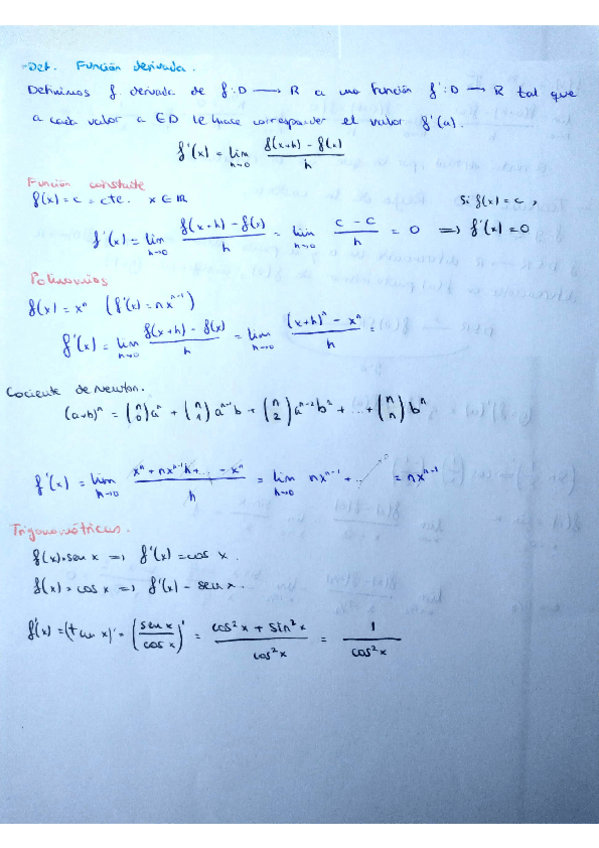 -Def. Función derivada.
Definimos f. derivada de f: D → R a una función f': D → R tal que
a cada valor a ∈ D le hace corresponder el valor f'(a).
f'(x) = lim h→0 (f(x+h) - f(x)) / h
Función constante
f(x) = c = cte. x ∈ R Si f(x) = c,
f'(x) = lim h→0 (f(x+h) - f(x)) / h = lim h→0 (c - c) / h = 0 ⟹ f'(x) = 0
Polinomios
f(x) = xⁿ (f'(x) = nxⁿ⁻¹)
f'(x) = lim h→0 (f(x+h) - f(x)) / h = lim h→0 ((x+h)ⁿ - xⁿ) / h =
Cociente de Newton.
(a+b)ⁿ = (n 0) aⁿ + (n 1) aⁿ⁻¹b + (n 2) aⁿ⁻²b² + ... + (n n) bⁿ
f'(x) = lim h→0 (xⁿ + nxⁿ⁻¹h + ... - xⁿ) / h = lim h→0 nxⁿ⁻¹ + ... → 0 = nxⁿ⁻¹
Trigonométricas.
f(x) = sen x ⟹ f'(x) = cos x.
f(x) = cos x ⟹ f'(x) - sen x.
f'(x) = (tan x)' = (sen x / cos x)' = (cos² x + sin² x) / cos² x = 1 / cos² x